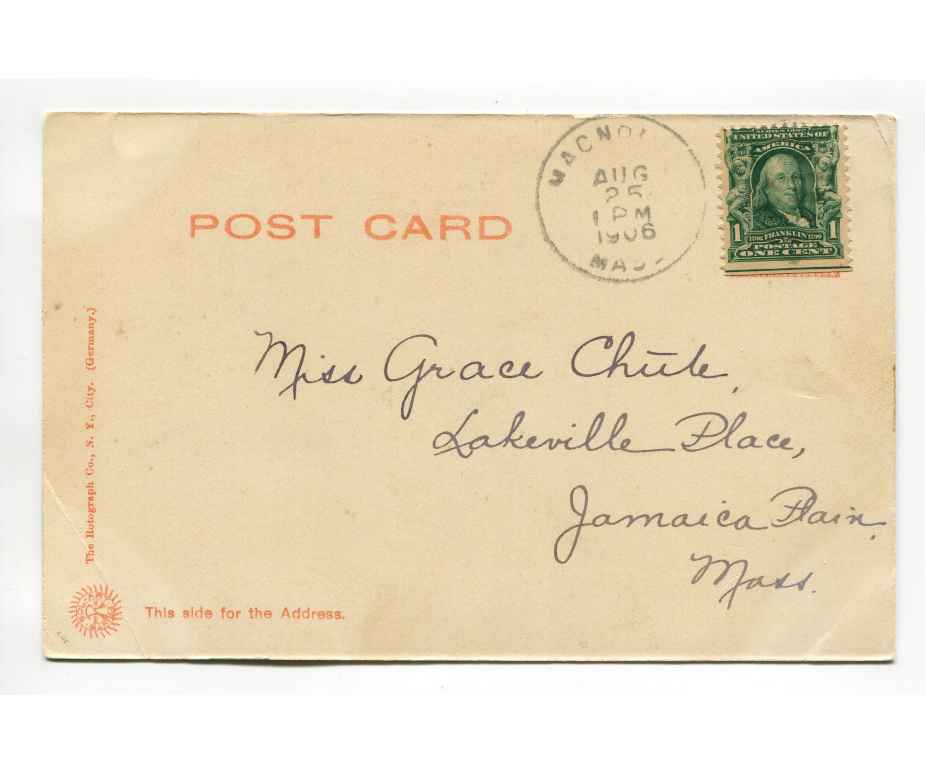 MAGNOL
AUG
25
1 PM
1906
MASS
UNITED STATES OF
AMERICA
1 FRANKLIN 1
POSTAGE
ONE CENT
POST CARD
Miss Grace Chute,
Lakeville Place,
Jamaica Plain,
Mass.
The Rotograph Co., N. Y., City. (Germany.)
This side for the Address.